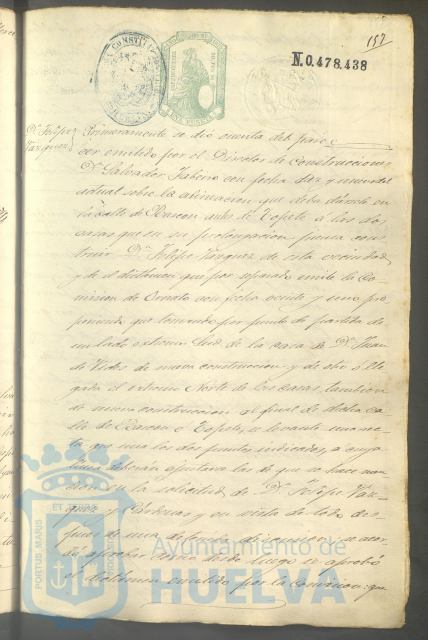 157
N.0.478.438
Dn. Felipe
Vazquez
Primeramente se dió cuenta del pare-
cer emitido por el Director de Construcciones
Dn. Salvador con fecha diez y nueve del
actual sobre la alineacion que deba dársele en
la calle de Rascon antes de Topete á las dos
casas que en su prolongacion piensa cons-
truir Dn. Felipe Vazquez de esta vecindad
y de el dictámen que por separado emite la Co-
mision de Ornato con fecha veinte y uno pro-
poniendo que tomando por punto de partida de
un lado extremo Sud de la casa de Dn. Juan
de nueva construccion y de otro ó lle-
gada el extremo Norte de las casas tambien
de nueva construccion al final de dicha ca-
lle de Rascon ó Topete, se levante una rec-
ta que una los dos puntos indicados, á cuya
linea deberán ajustarse las de que se hace men-
cion en la solicitud de Dn. Felipe Vaz-
quez y Cárdenas y en vista de todo des-
pues de una detenida discusion se acor-
dó aprobar desde luego se aprobó
el dictámen emitido por la Comision: que
PORTUS MARIS
ET
Ayuntamiento de
HUELVA